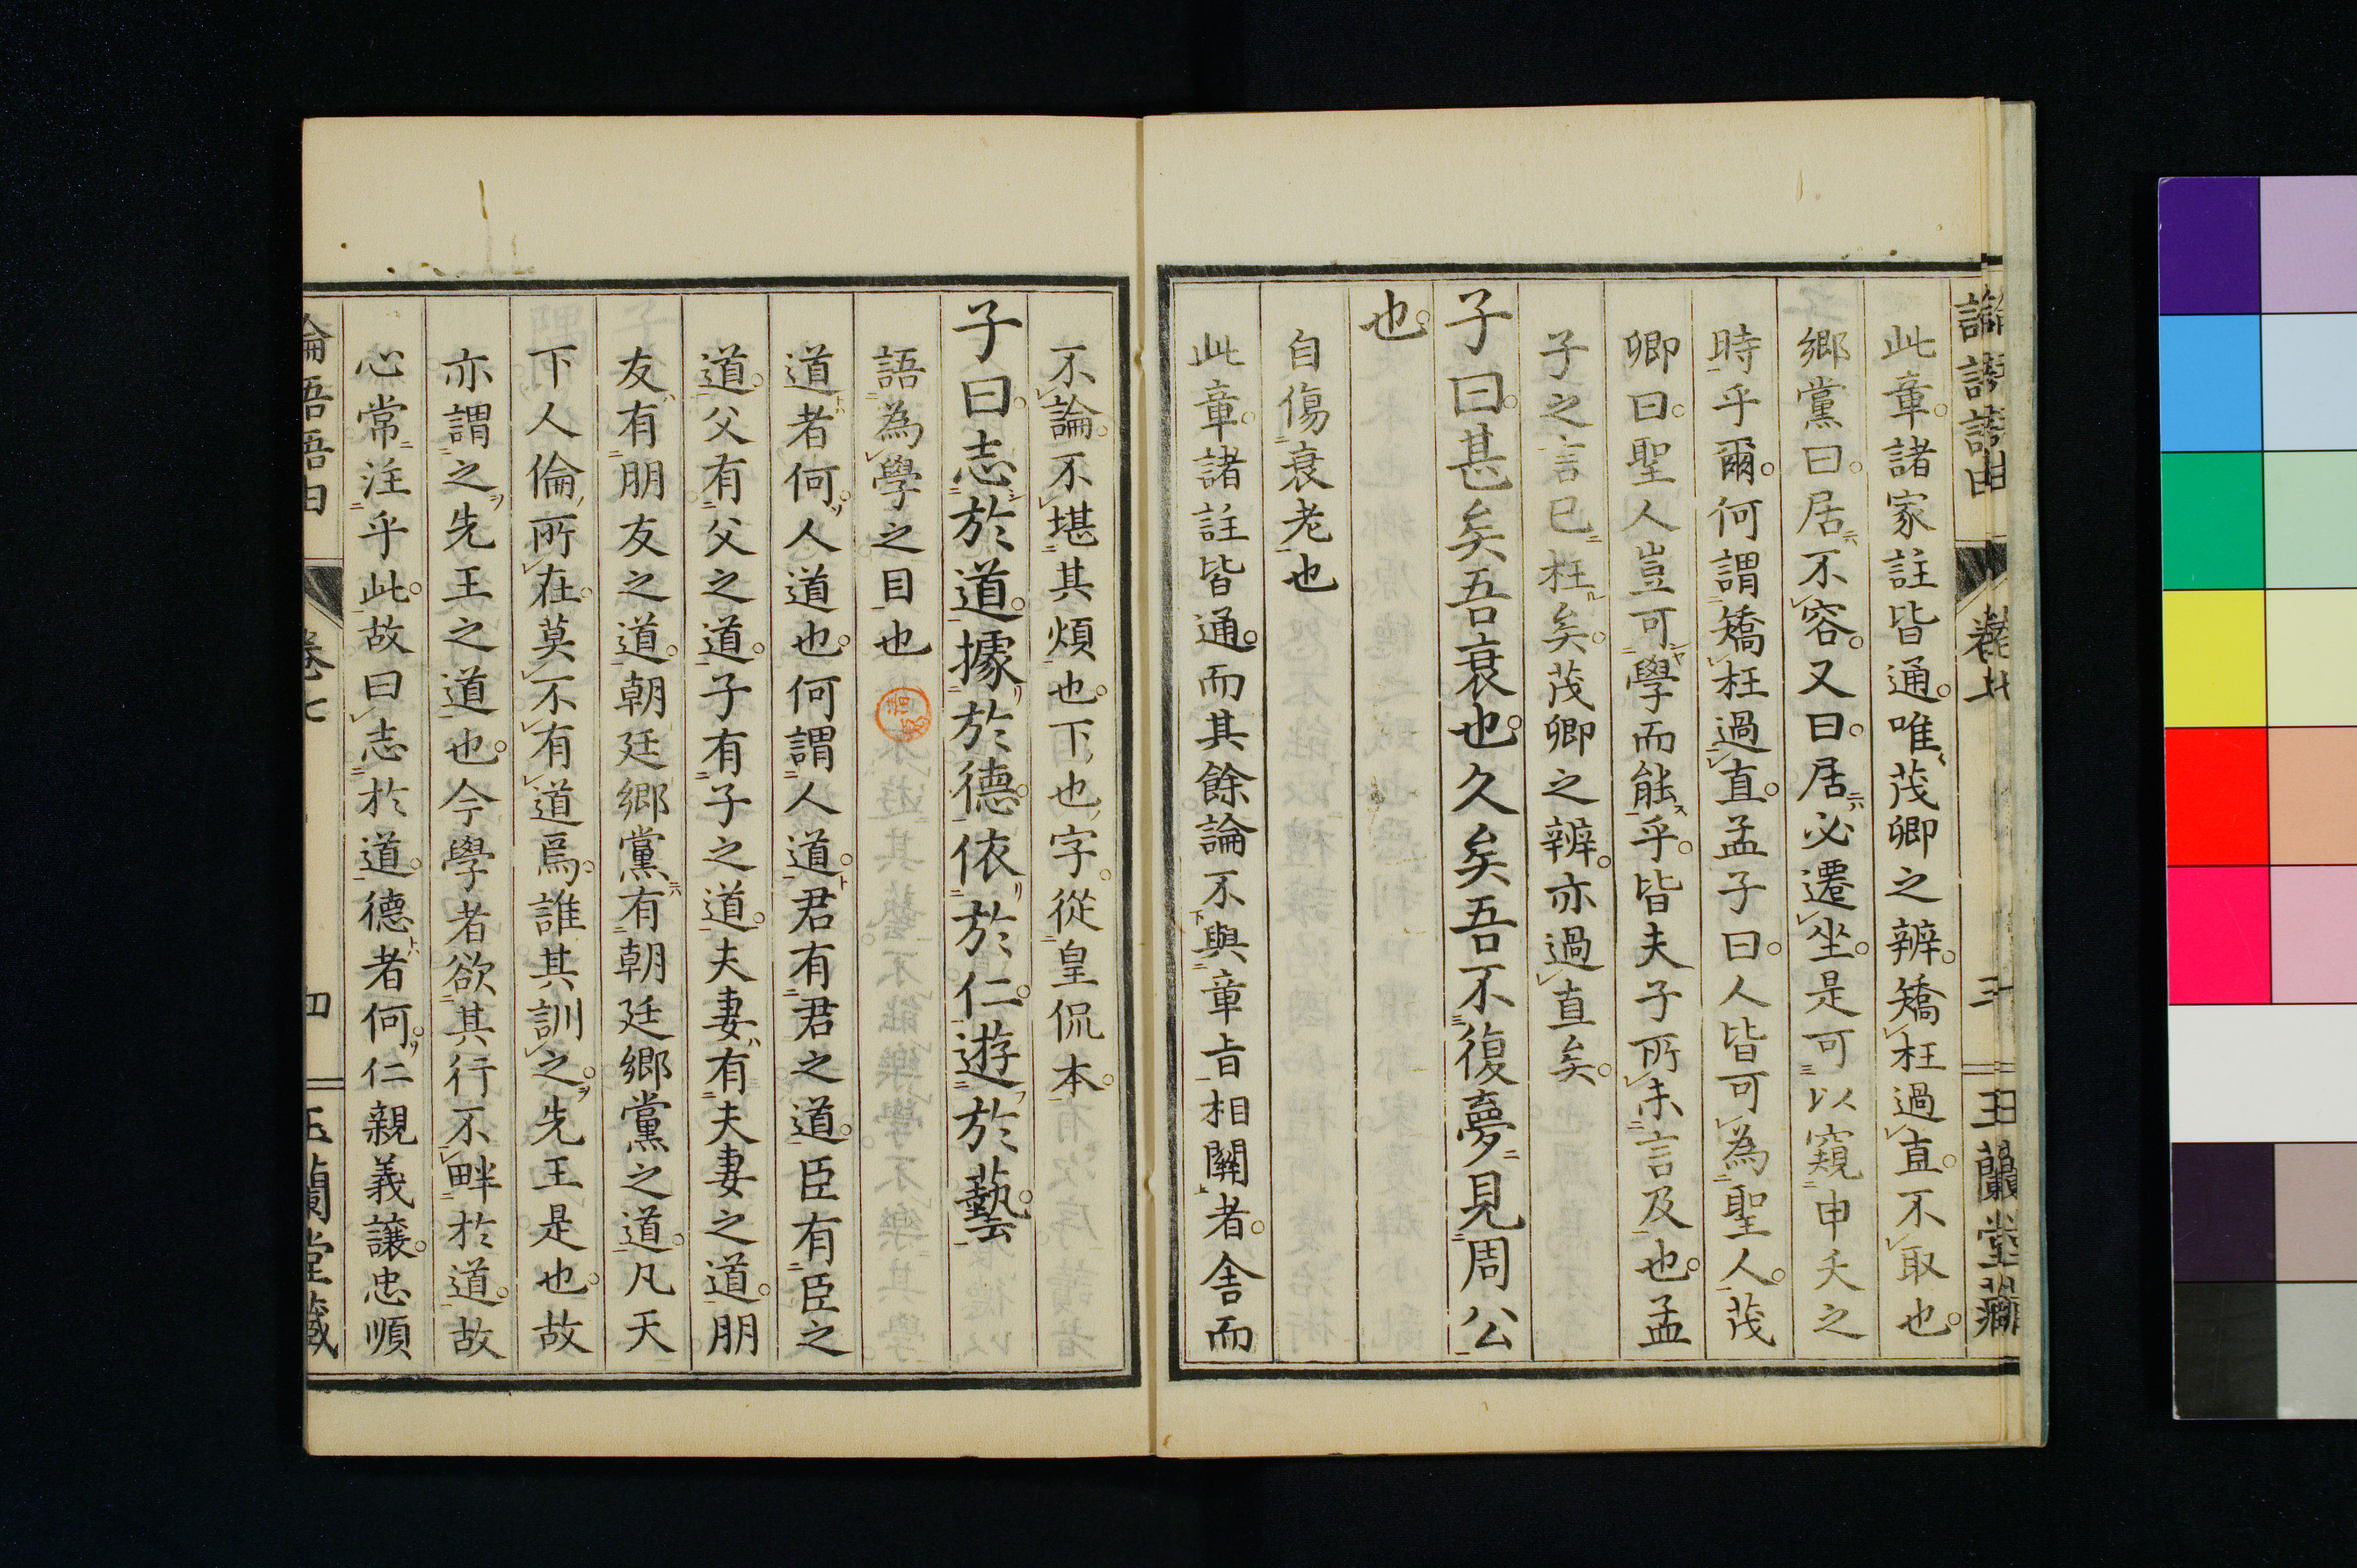 此章諸家註皆通唯茂卿之辨矯枉過直不取也
鄉黨曰居不容又曰居必遷坐是可以窺申夭之
時乎爾何謂矯枉過直孟子曰人皆可為聖人茂
卿曰聖人豈可學而能乎皆夫子所未言及也孟
子之言已枉矣茂卿之辨亦過直矣
子曰甚矣吾衰也久矣吾不復夢見周公
也
自傷衰老也
此章諸註皆通而其餘論不與章旨相關者舍而
不論不堪其煩也下也字從皇侃本
子曰志於道據於德依於仁遊於藝
語為學之目也
道者何人道也何謂人道君有君之道臣有臣之
道父有父之道子有子之道夫妻有夫妻之道朋
友有朋友之道朝廷鄉黨有朝廷鄉黨之道凡天
下人倫所在莫不有道焉誰其訓之先王是也故
亦謂之先王之道也今學者欲其行不畔於道故
心常注乎此故曰志於道德者何仁親義讓忠順
論語語由 卷七 四 玉蘭堂藏